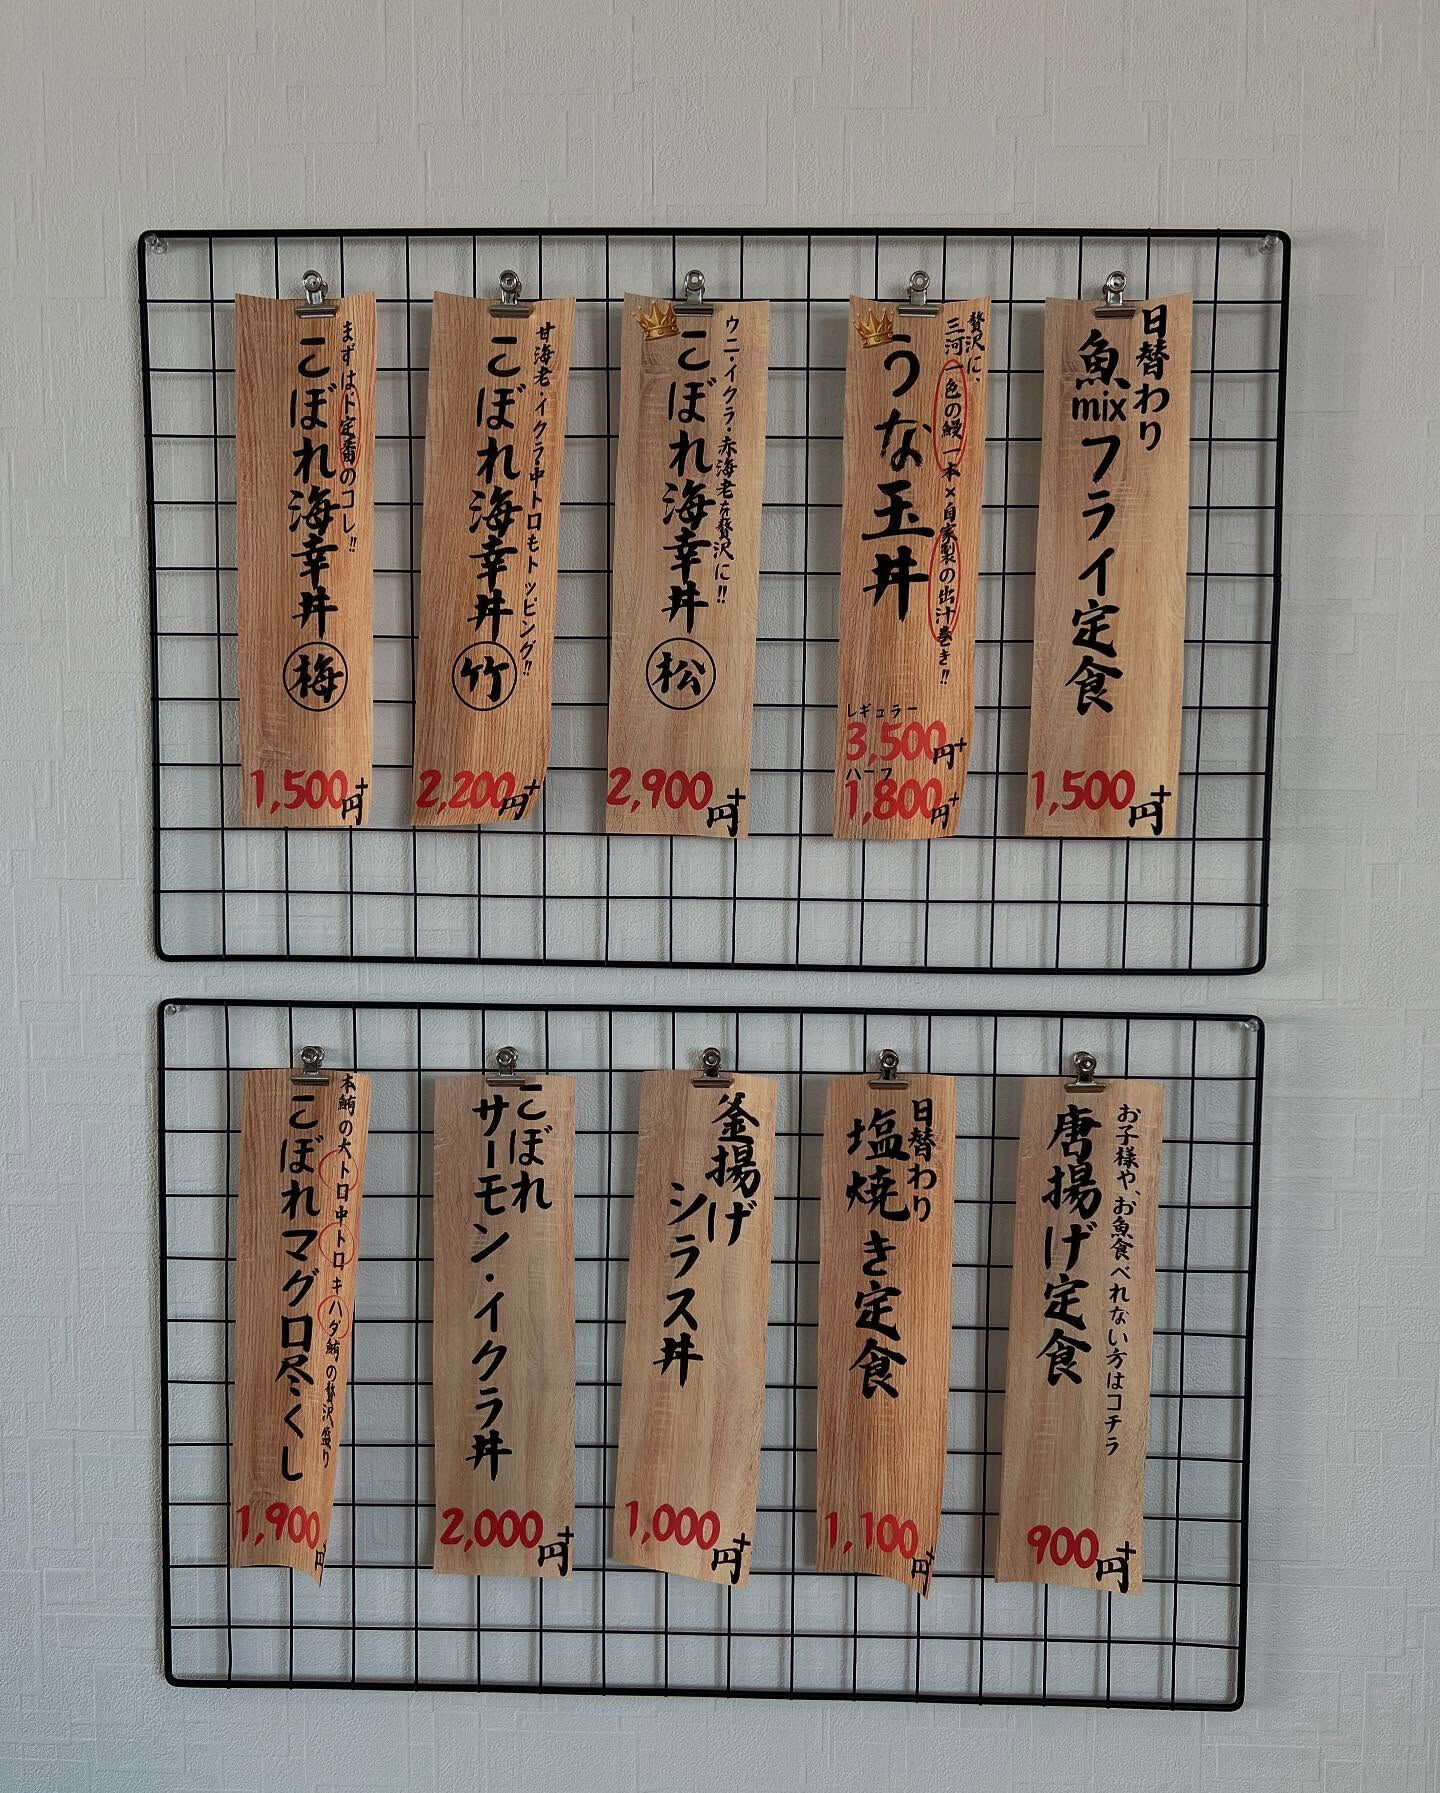 まずはド定番のコレ!!
こぼれ海幸丼
梅
1,500円+
甘海老・イクラ・中トロもトッピング!!
こぼれ海幸丼
竹
2,200円+
ウニ・イクラ・赤海老を贅沢に!!
こぼれ海幸丼
松
2,900円+
贅沢に、
三河一色の鰻一本×自家製の出汁巻き!!
うな玉丼
レギュラー
3,500円+
ハーフ
1,800円+
日替わり
魚mixフライ定食
1,500円+
本鮪の大トロ中トロキハダ鮪の贅沢盛り
こぼれマグロ尽くし
1,900円
こぼれ
サーモン・イクラ丼
2,000円+
釜揚げ
シラス丼
1,000円+
日替わり
塩焼き定食
1,100円+
お子様や、お魚食べれない方はコチラ
唐揚げ定食
900円+